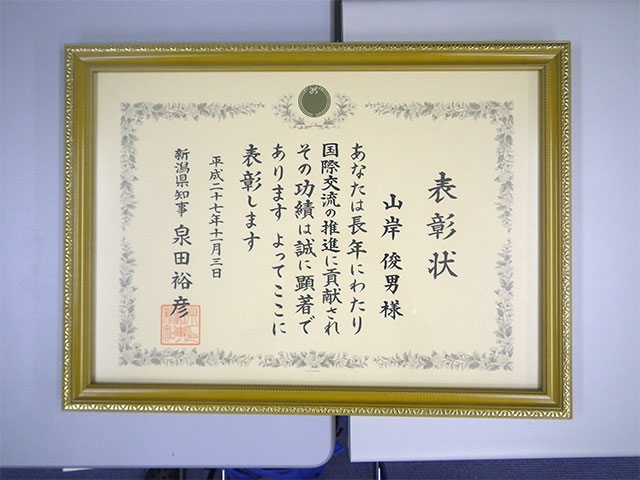 表彰状
山岸俊男様
あなたは長年にわたり
国際交流の推進に貢献され
その功績は誠に顕著で
あります よってここに
表彰します
平成二十七年十一月三日
新潟県知事 泉田裕彦